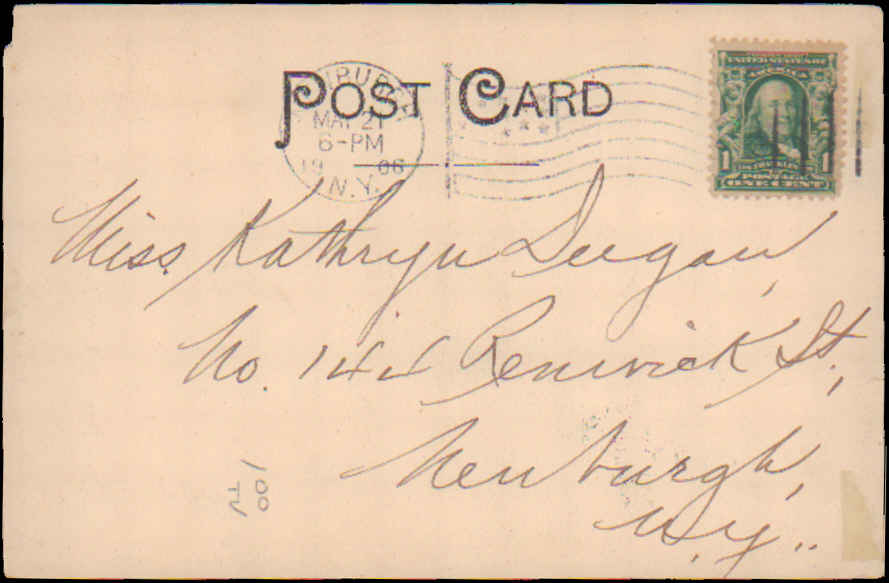 POST CARD
MAY 21
6-PM
19 06
N.Y.
UNITED STATES OF
AMERICA
1 1
FRANKLIN
POSTAGE
ONE CENT
Miss Kathryn Deegan,
No. 144 Renwick St.,
Newburgh,
N.Y..
100
TV